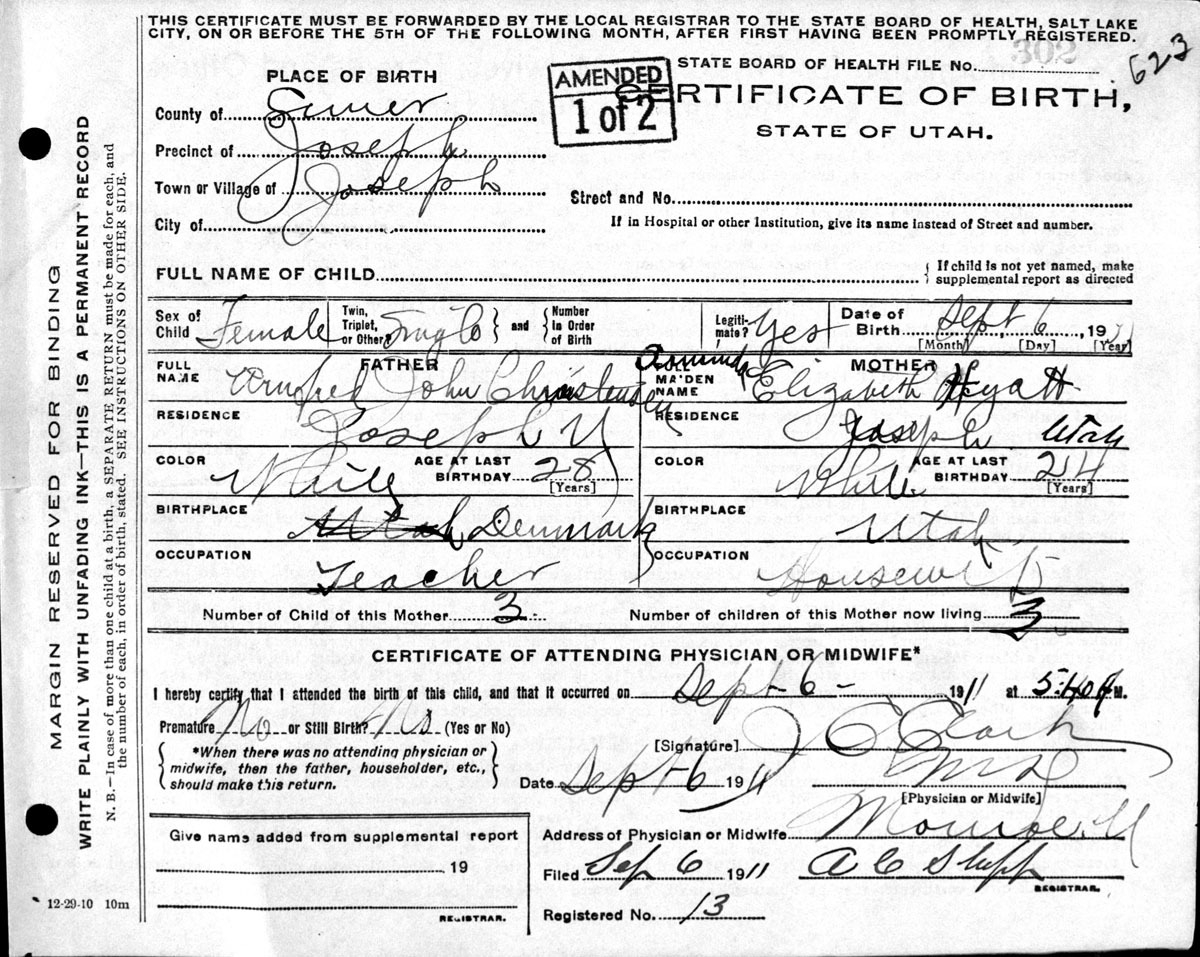 THIS CERTIFICATE MUST BE FORWARDED BY THE LOCAL REGISTRAR TO THE STATE BOARD OF HEALTH, SALT LAKE
CITY, ON OR BEFORE THE 5TH OF THE FOLLOWING MONTH, AFTER FIRST HAVING BEEN PROMPTLY REGISTERED.
302
623
STATE BOARD OF HEALTH FILE No.
PLACE OF BIRTH
AMENDED
1 of 2
CERTIFICATE OF BIRTH,
STATE OF UTAH.
County of Sevier
Precinct of Joseph
Town or Village of Joseph
City of
Street and No.
If in Hospital or other Institution, give its name instead of Street and number.
FULL NAME OF CHILD
{ If child is not yet named, make
supplemental report as directed
Sex of Child Female
Twin, Triplet, or Other? Single } and { Number In Order of Birth
Legiti-mate? Yes
Date of Birth Sept 6 191
[Month] [Day] [Year]
FATHER
FULL NAME John Christensen
MOTHER
MAIDEN NAME Amanda Elizabeth Hyatt
RESIDENCE Joseph U
RESIDENCE Joseph Utah
COLOR White AGE AT LAST BIRTHDAY 28 [Years]
COLOR White AGE AT LAST BIRTHDAY 24 [Years]
BIRTHPLACE Utah Denmark
BIRTHPLACE Utah
OCCUPATION Teacher
OCCUPATION Housewife
Number of Child of this Mother 3
Number of children of this Mother now living 3
CERTIFICATE OF ATTENDING PHYSICIAN OR MIDWIFE*
I hereby certify that I attended the birth of this child, and that it occurred on Sept 6 - 1911 at 5:40 M.
Premature No or Still Birth? No (Yes or No)
{ *When there was no attending physician or
midwife, then the father, householder, etc.,
should make this return. }
[Signature]
Date Sept 6 1911
MD
[Physician or Midwife]
Give name added from supplemental report
19
REGISTRAR.
Address of Physician or Midwife Monroe U
Filed Sep 6 1911
A C
REGISTRAR.
Registered No. 13
12-29-10 10m
MARGIN RESERVED FOR BINDING
WRITE PLAINLY WITH UNFADING INK—THIS IS A PERMANENT RECORD
N. B.—In case of more than one child at a birth, a SEPARATE RETURN must be made for each, and
the number of each, in order of birth, stated. SEE INSTRUCTIONS ON OTHER SIDE.